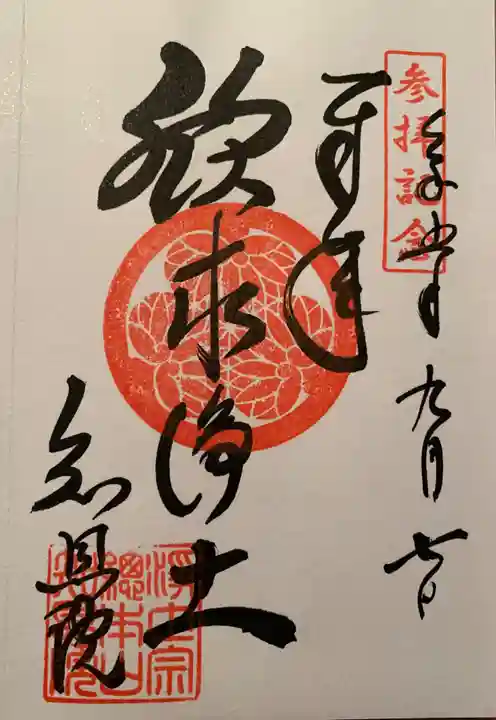 参拝記念
九月七日
奉拝
欣求浄土
知恩院
浄土宗
總本山
知恩院